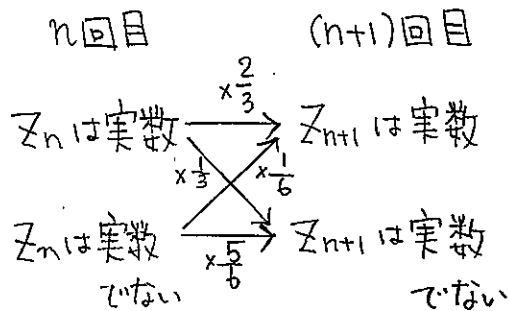 n回目 (n+1)回目
×2/3
Znは実数 Zn+1は実数
×1/3 ×1/6
Znは実数でない Zn+1は実数でない
×5/6